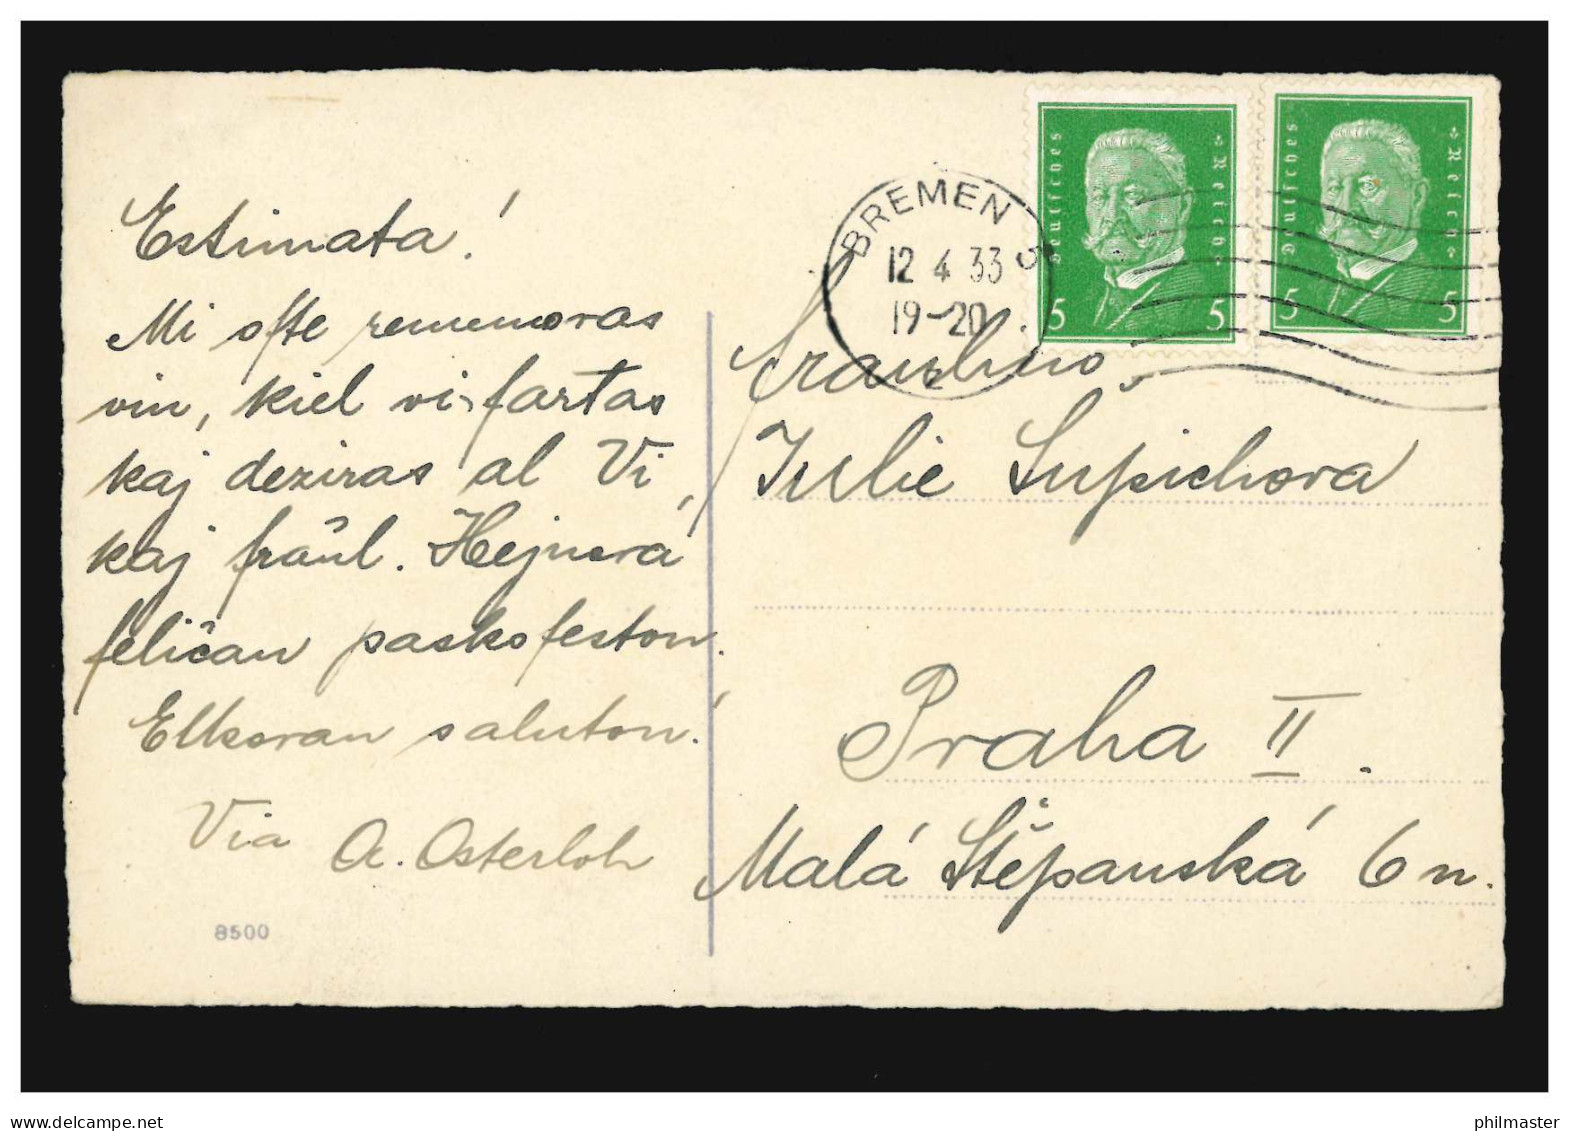 Estimata!
Mi ofte rememoras
vin, kiel vi fartas
kaj deziras al Vi,
kaj fraŭl. Hejnorá
feliĉan paskofeston.
Elkoran saluton!
Via A. Osterloh
8500
BREMEN 5
12 4 33
19-20
Deutsches Reich
5 5
Deutsches Reich
5 5
Fraulino,
Julie Supichova
Praha II.
Malá Štěpanská 6 n.
philmaster
delcampe.net